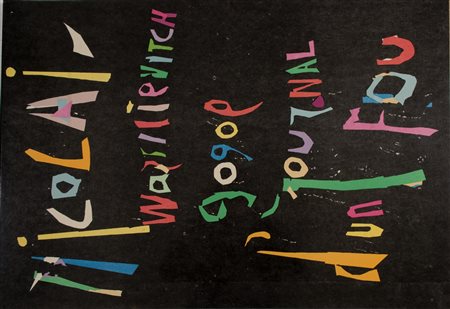 NicoLAi
WassiliévitcH
gogol
JOURNAL
d'un FOU